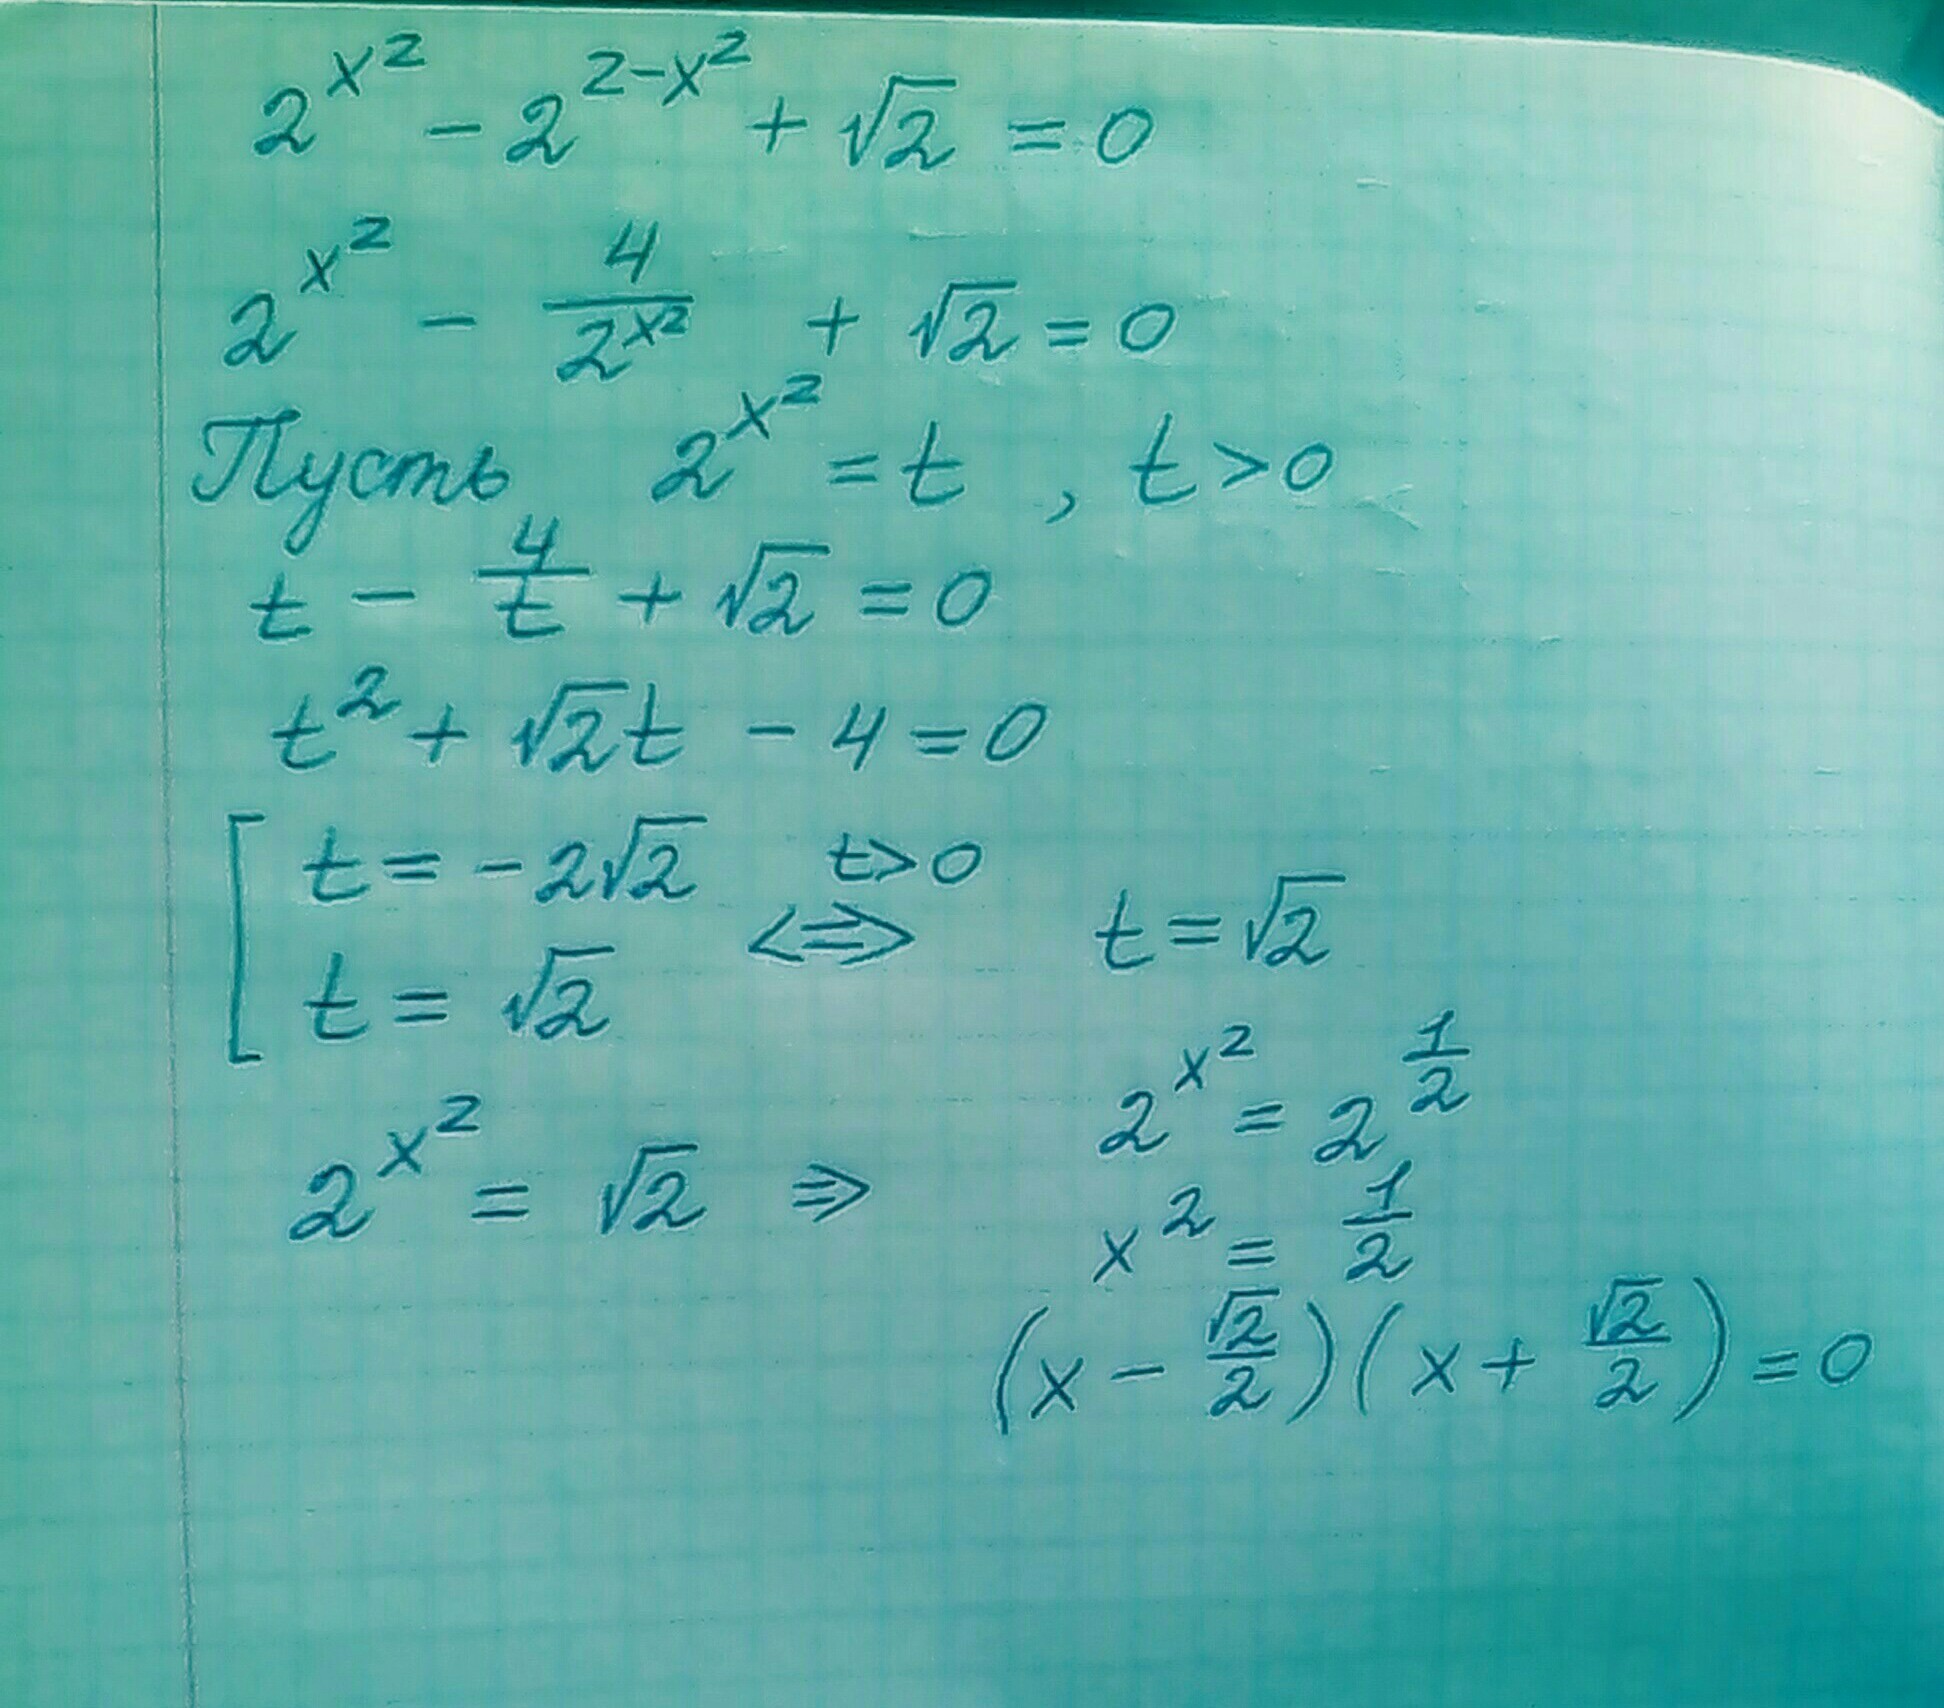 2^{x^2} - 2^{2-x^2} + √2 = 0
2^{x^2} - \frac{4}{2^{x^2}} + √2 = 0
Пусть 2^{x^2} = t , t > 0
t - \frac{4}{t} + √2 = 0
t^2 + √2t - 4 = 0
[ t = -2√2
t = √2
t>0
<=> t = √2
2^{x^2} = √2 ⇒
2^{x^2} = 2^{\frac{1}{2}}
x^2 = \frac{1}{2}
(x - \frac{√2}{2})(x + \frac{√2}{2}) = 0